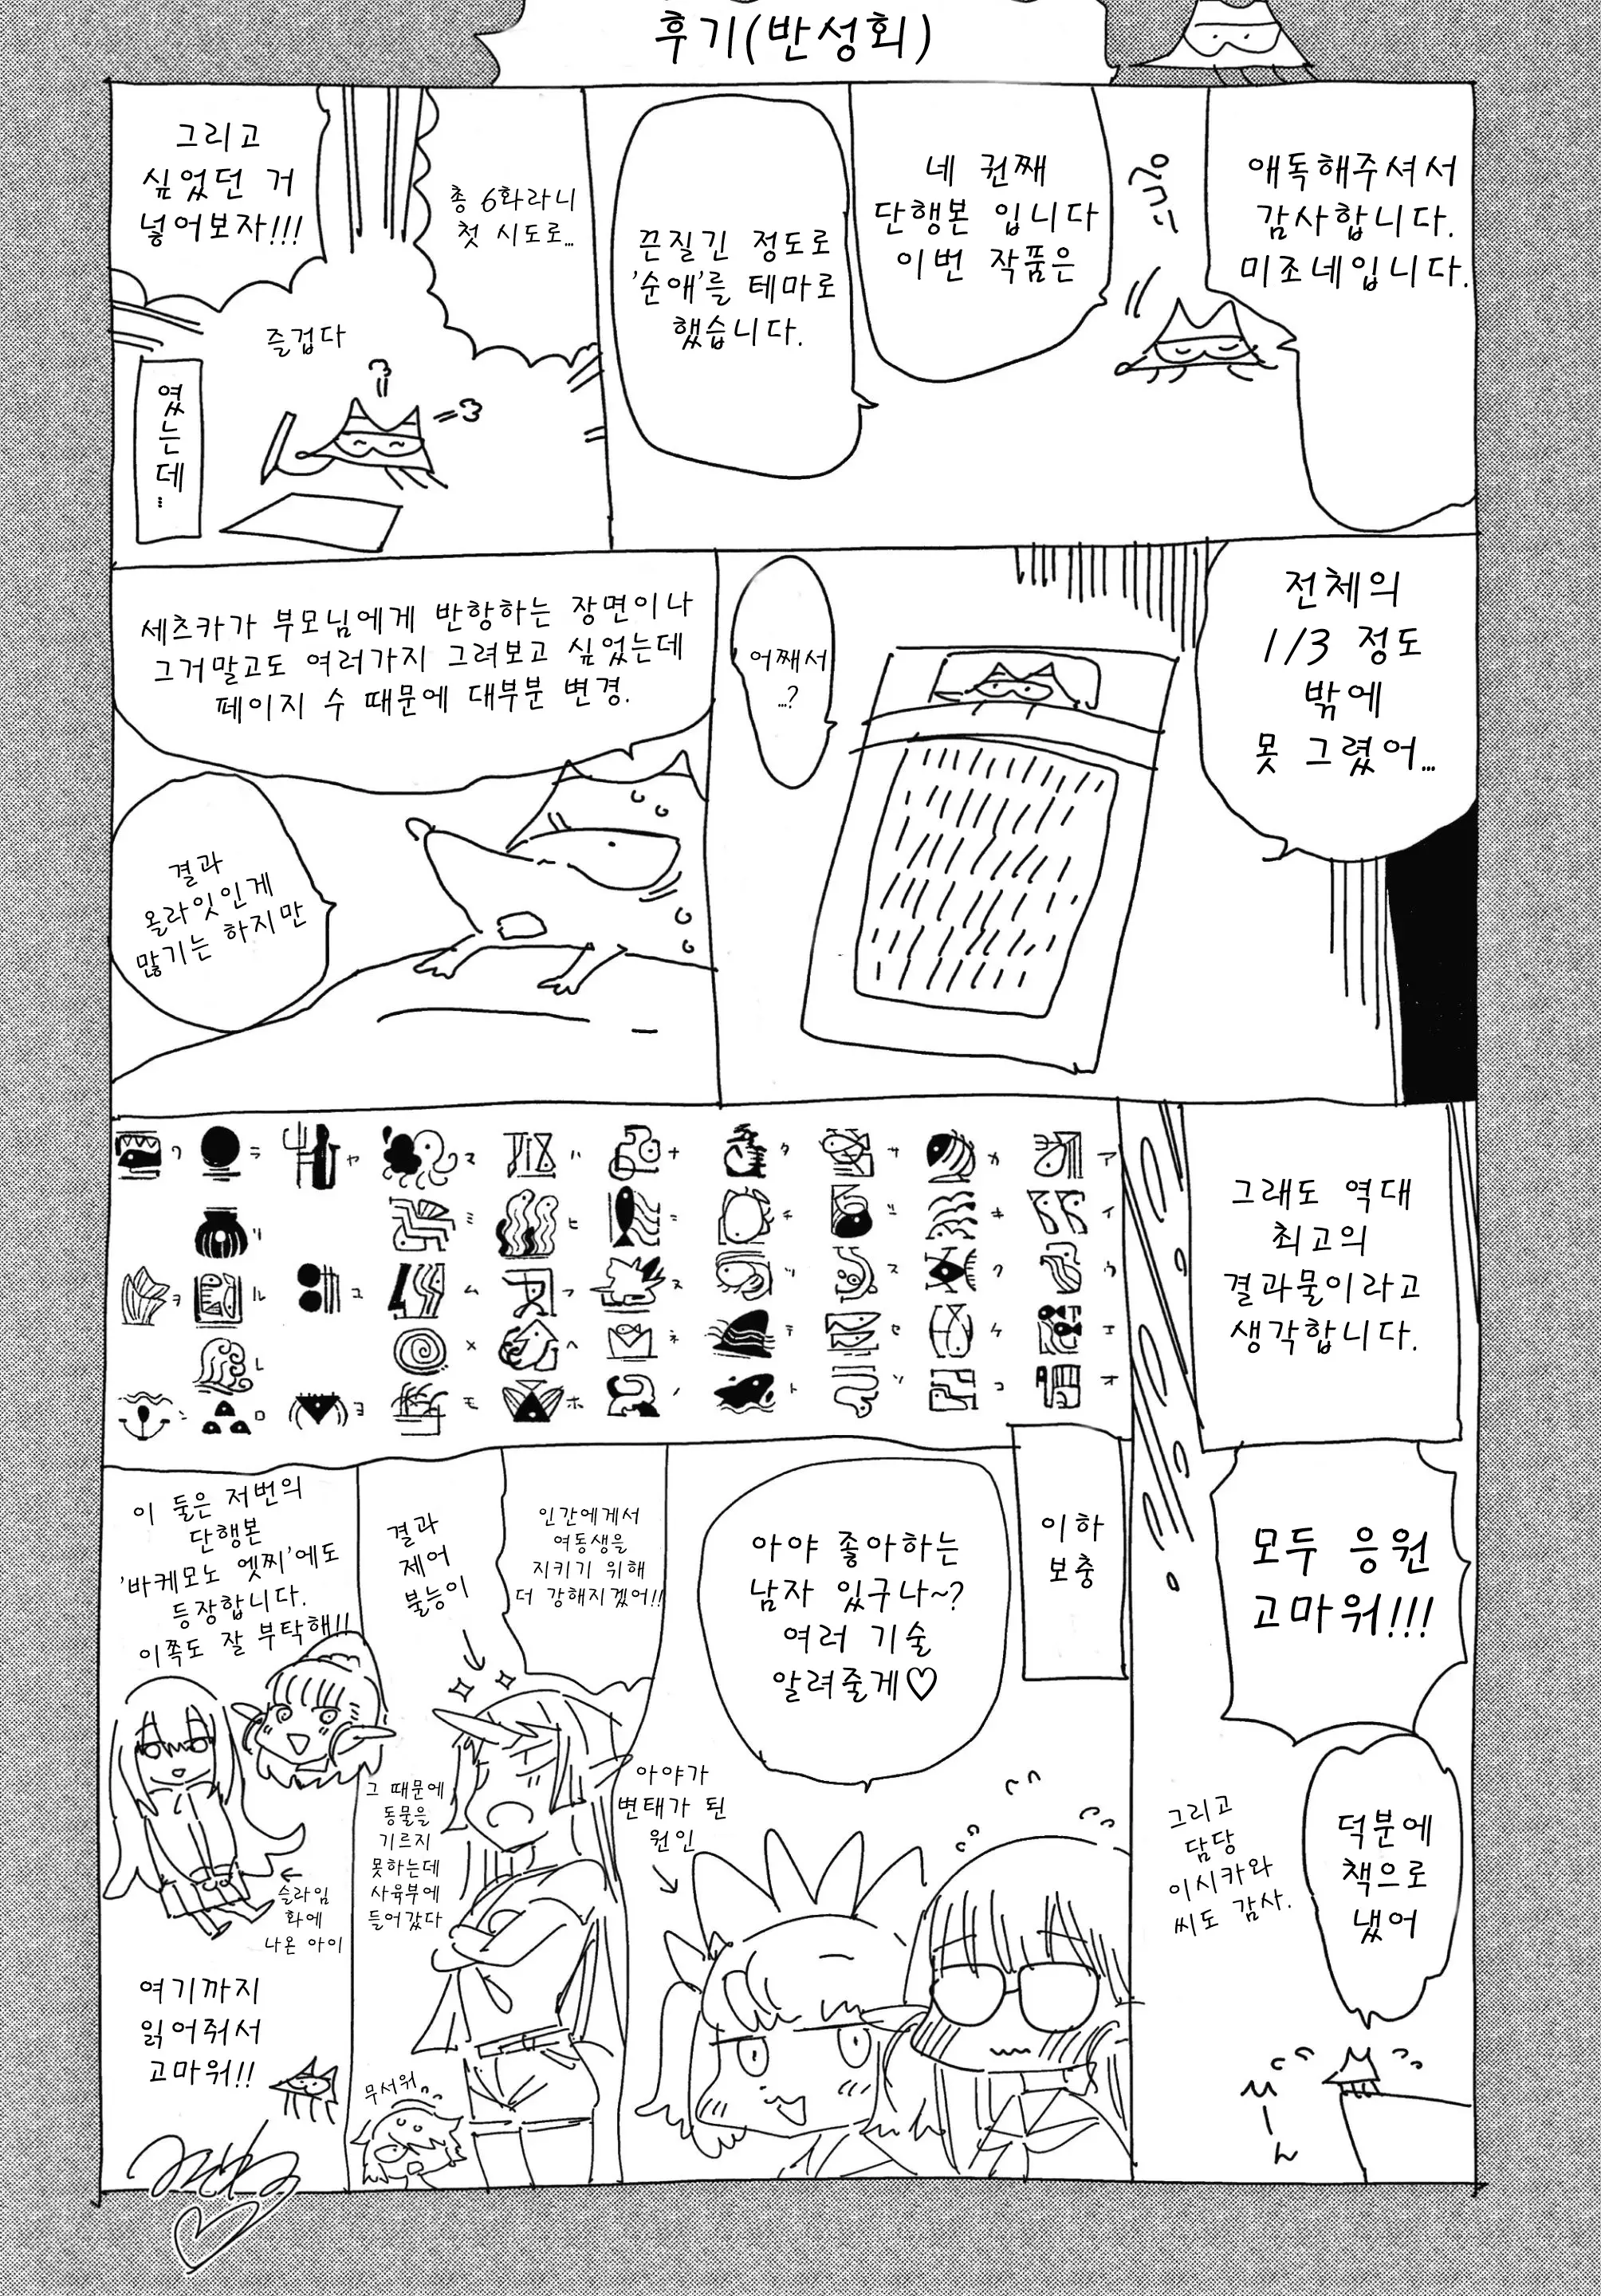 후기(반성회)
애독해주셔서
감사합니다.
미조네입니다.
네 권째
단행본 입니다
이번 작품은
끈질긴 정도로
'순애'를 테마로
했습니다.
총 6화라니
첫 시도로...
그리고
싶었던 거
넣어보자!!!
즐겁다
였는데...
전체의
1/3 정도
밖에
못 그렸어...
어째서
...?
세츠카가 부모님에게 반항하는 장면이나
그거말고도 여러가지 그려보고 싶었는데
페이지 수 때문에 대부분 변경.
결과
올라잇인게
많기는 하지만
그래도 역대
최고의
결과물이라고
생각합니다.
ア カ サ タ ナ ハ マ ヤ ラ ワ
イ キ シ チ ニ ヒ ミ リ
ウ ク ス ツ ヌ フ ム ユ ル ヲ
エ ケ セ テ ネ ヘ メ レ
オ コ ソ ト ノ ホ モ ヨ ロ ン
모두 응원
고마워!!!
덕분에
책으로
냈어
그리고
담당
이시카와
씨도 감사.
이하
보충
아야 좋아하는
남자 있구나~?
여러 기술
알려줄게♡
아야가
변태가 된
원인
인간에게서
여동생을
지키기 위해
더 강해지겠어!!
결과
제어
불능이
그 때문에
동물을
기르지
못하는데
사육부에
들어갔다
무서워
이 둘은 저번의
단행본
'바케모노 엣찌'에도
등장합니다.
이쪽도 잘 부탁해!!
슬라임
화에
나온 아이
여기까지
읽어줘서
고마워!!